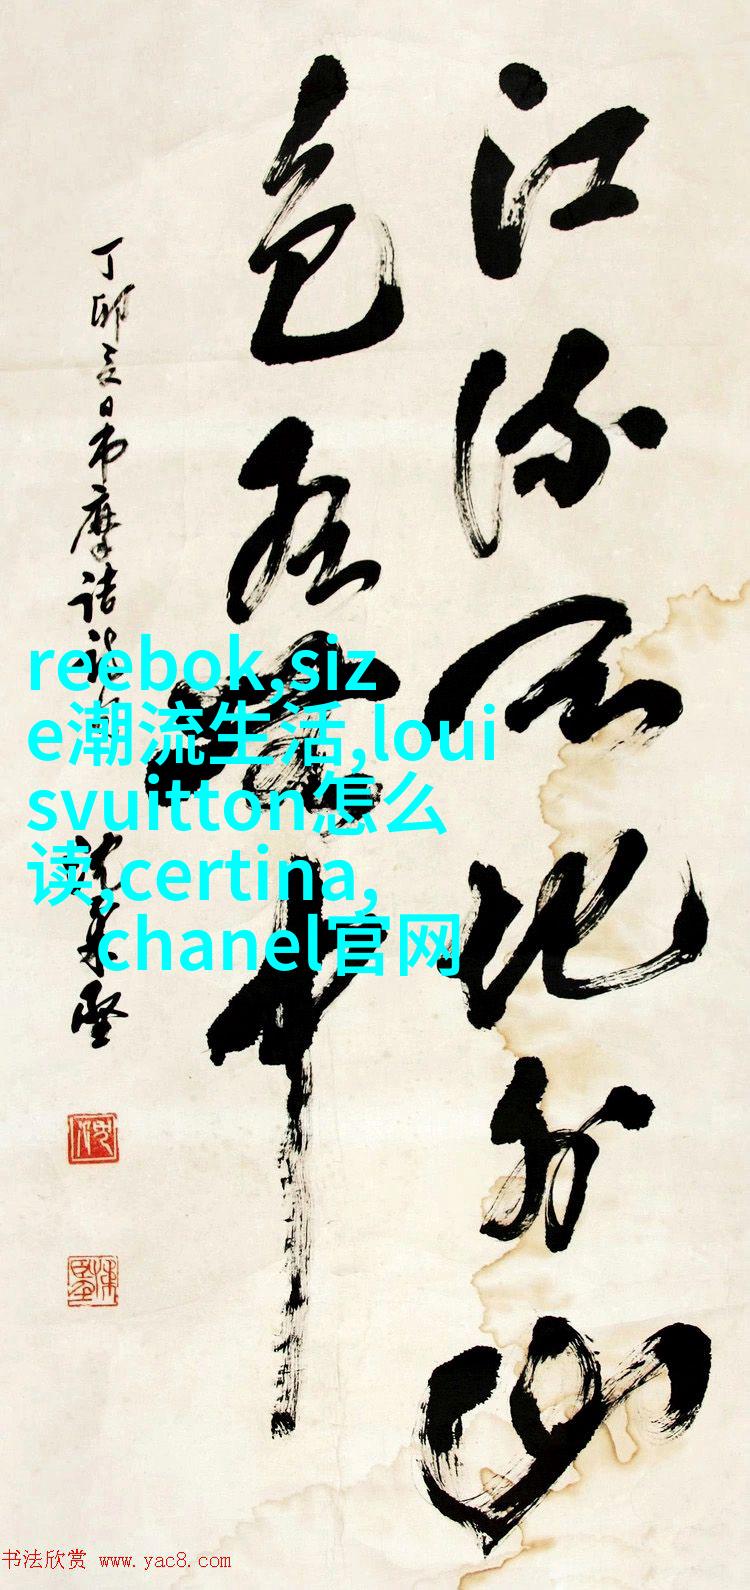 江流天地外山
色有無中
丁卯夏日书摩诘
reebok,siz
e潮流生活,loui
svuitton怎么
读,certina,
chanel官网
书法欣赏 www.yac8.com